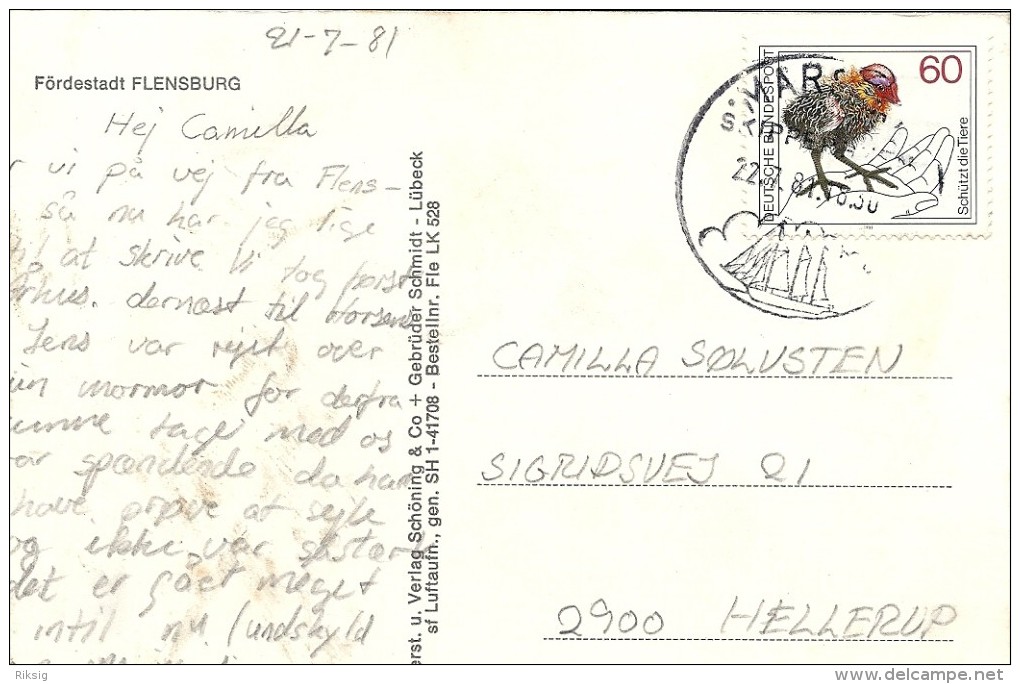 21-7-81
Fördestadt FLENSBURG
Hej Camilla
vi på vej fra Flens-
så nu har jeg lige
til at skrive. Vi tog først
århus. dernæst til Horsens
Jens var rejst over
min mormor for derfra
kunne tage med os
var spændende da han
have prøve at sejle
og ikke var så stærk
det er gået meget
intil nu (undskyld
Herst. u. Verlag Schöning & Co + Gebrüder Schmidt - Lübeck
sf Luftaufn., gen. SH 1-41708 - Bestellnr. Fle LK 528
DEUTSCHE BUNDESPOST
60
Schützt die Tiere
22.7.81.18.30
CAMILLA SØLVSTEN
SIGRIDSVEJ 21
2900 HELLERUP
Riksig
www.delcampe.net